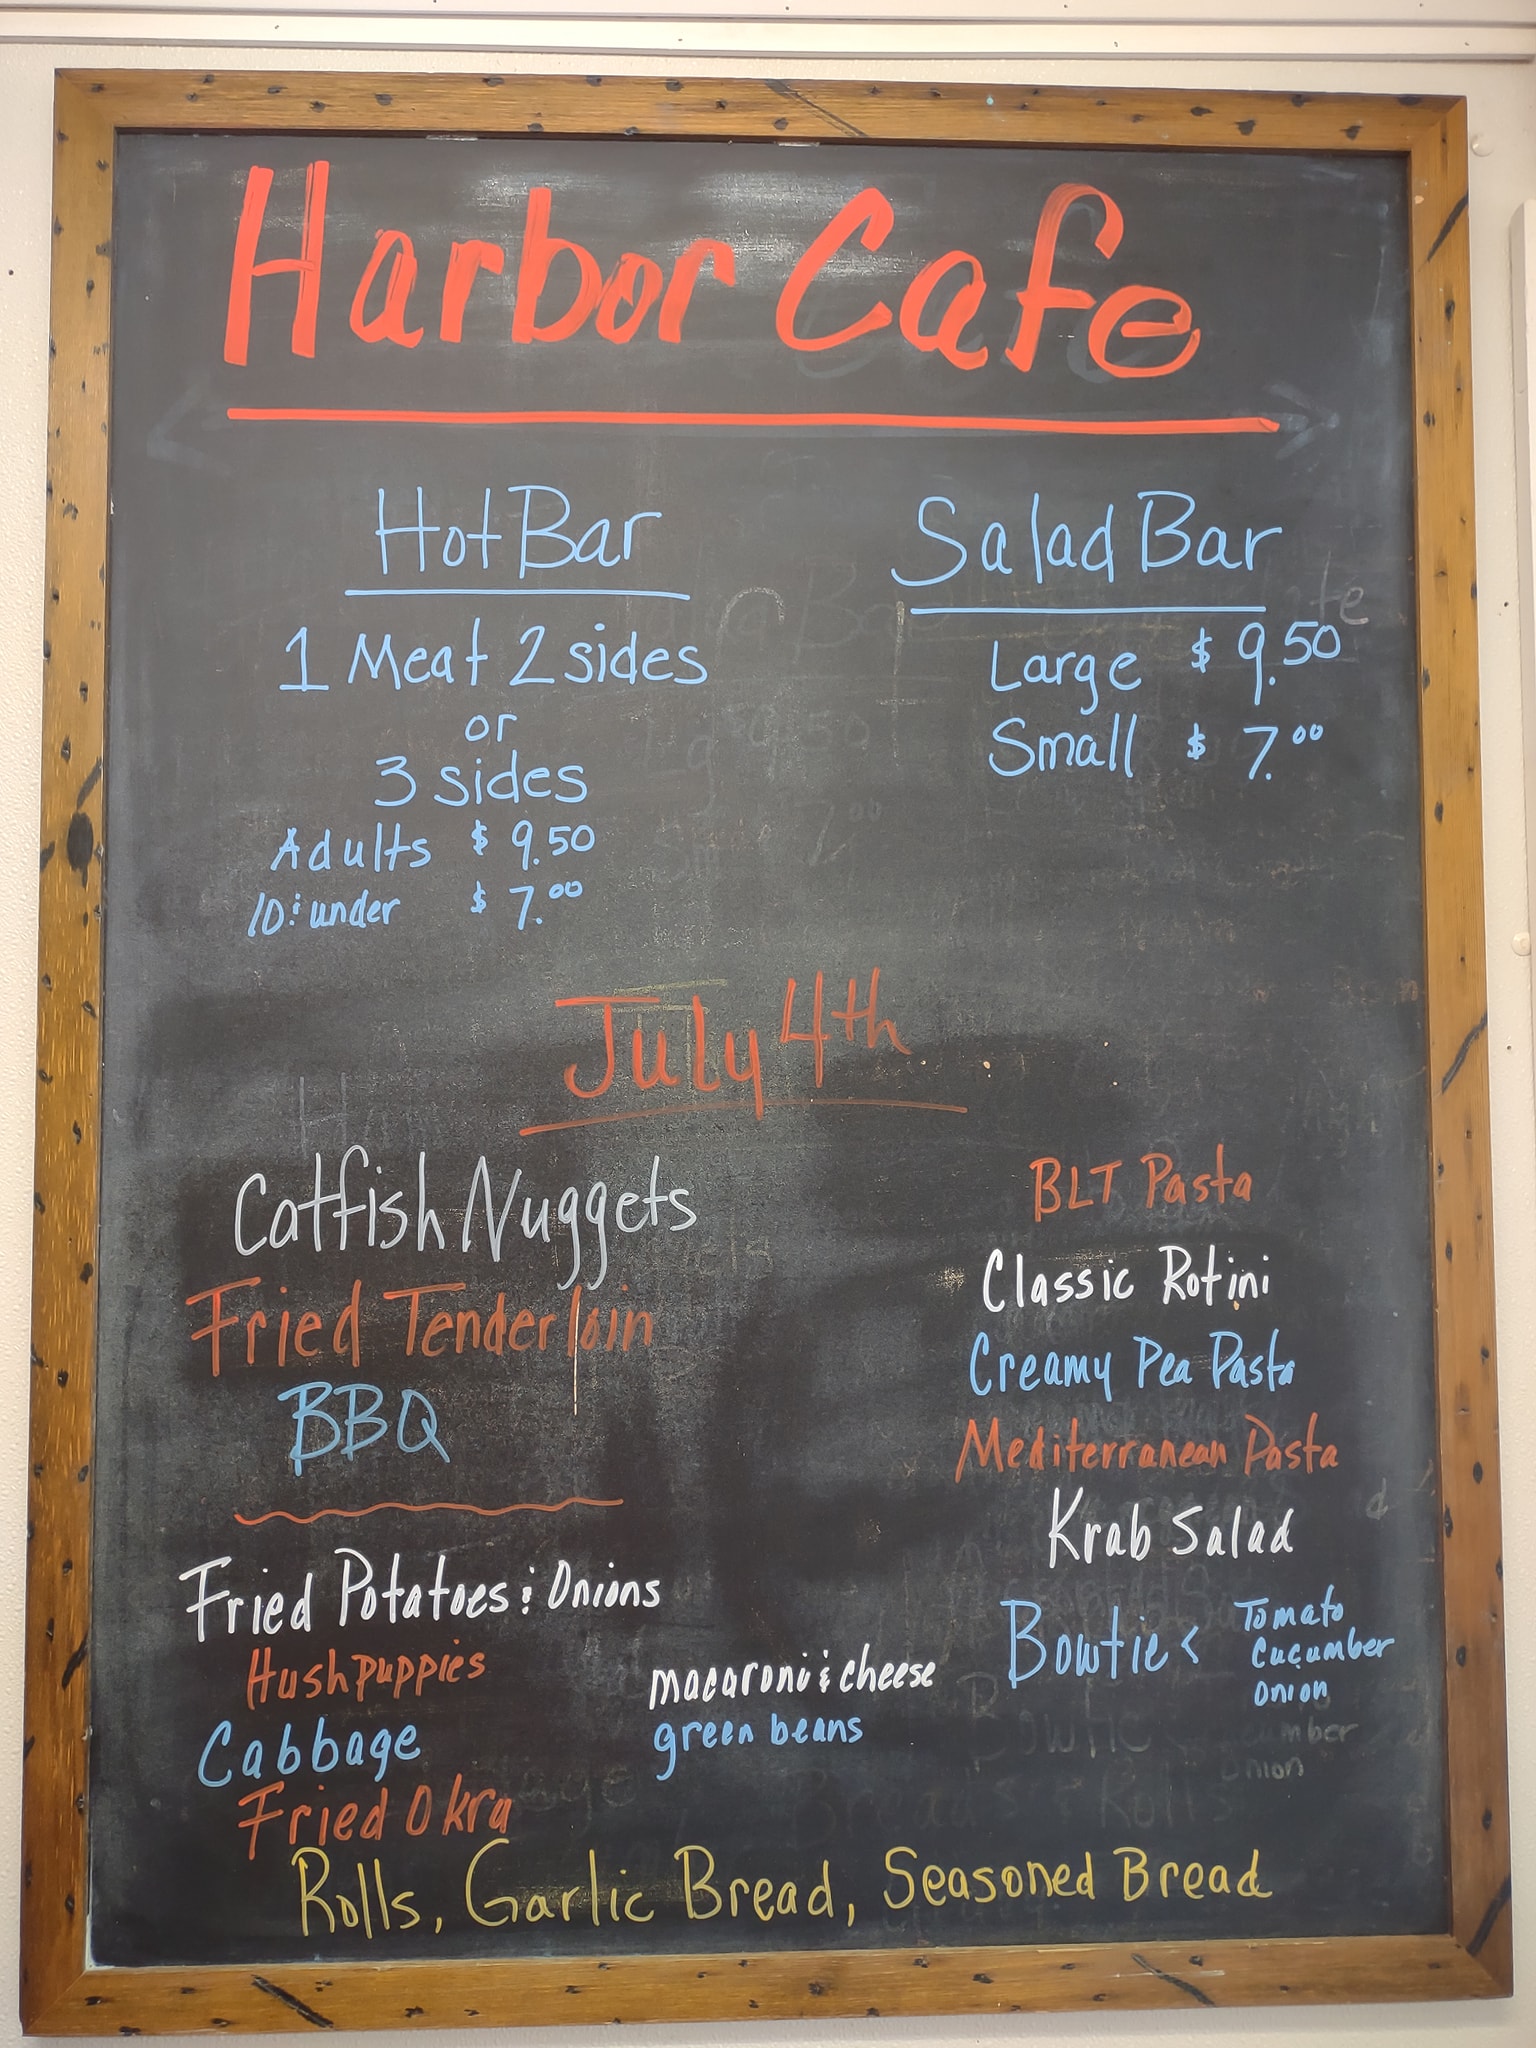 Harbor Cafe
Hot Bar
1 Meat 2 sides
or
3 sides
Adults $ 9.50
10 & under $ 7.00
Salad Bar
Large $ 9.50
Small $ 7.00
July 4th
Catfish Nuggets
Fried Tenderloin
BBQ
Fried Potatoes & Onions
Hushpuppies
Cabbage
Fried Okra
macaroni & cheese
green beans
BLT Pasta
Classic Rotini
Creamy Pea Pasta
Mediterranean Pasta
Krab Salad
Bowtie < Tomato
Cucumber
Onion
Rolls, Garlic Bread, Seasoned Bread